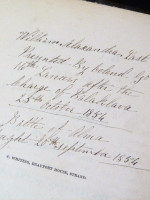 William Alexander
Presented by
16th Lancers after the
Charge of Balaklava
25th October 1854
Battle of Alma
Fought 20th September 1854
C. WHITING, BEAUFORT HOUSE, STRAND.